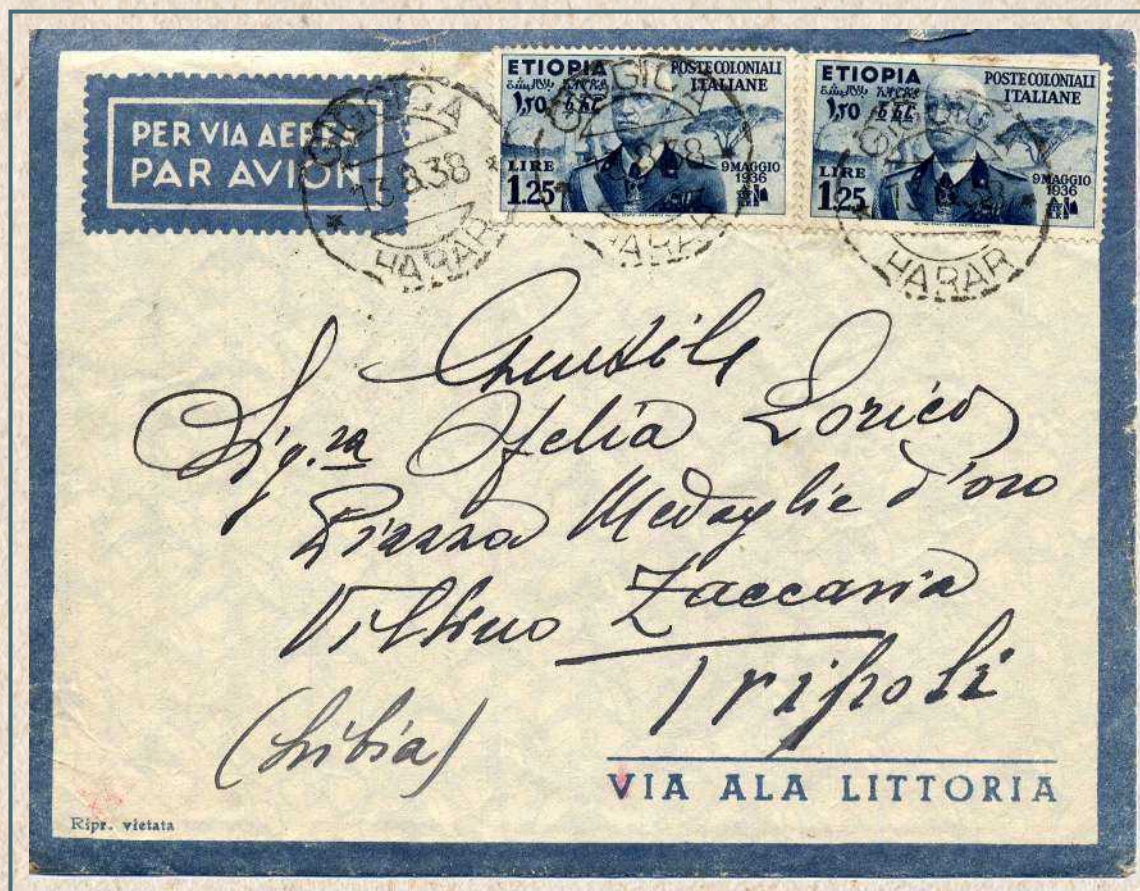 PER VIA AEREA
PAR AVION
GIGGIGA
13.8.38
HARAR
ETIOPIA
POSTE COLONIALI
ITALIANE
LIRE
1.25
9 MAGGIO
1936
GIGGIGA
8.38
HARAR
ETIOPIA
POSTE COLONIALI
ITALIANE
LIRE
1.25
9 MAGGIO
1936
HARAR
Gentile
Sig.ra Ofelia Lorico
Piazza Medaglie d'oro
Villino Zaccaria
Tripoli
(Libia)
VIA ALA LITTORIA
Ripr. vietata